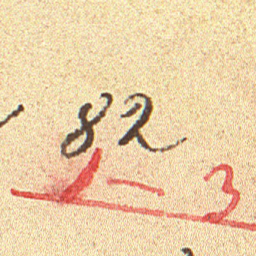 82
1-3